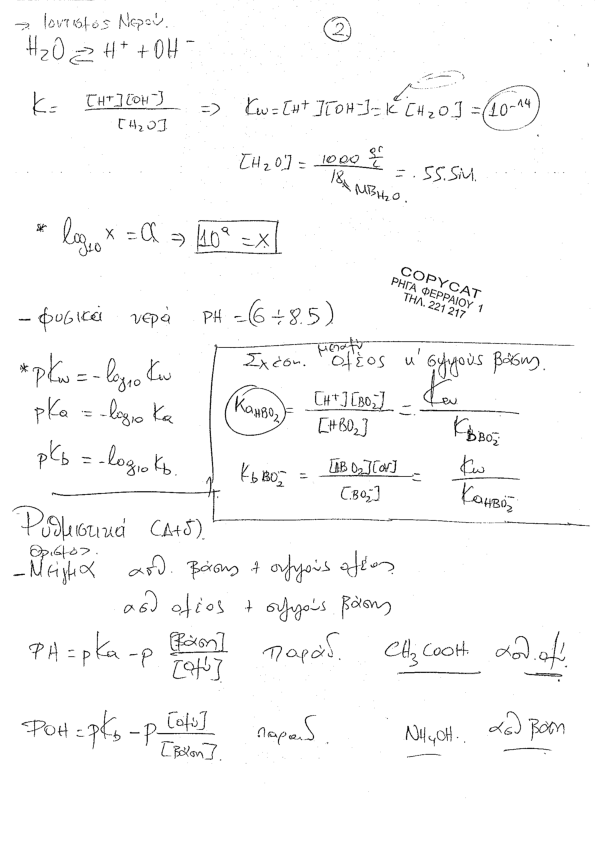 → Ιοντισμός Νερού.
②
H₂O ⇌ H⁺ + OH⁻
K = [H⁺][OH⁻] / [H₂O] ⇒ Kw = [H⁺][OH⁻] = K [H₂O] = 10⁻¹⁴
[H₂O] = 1000 gr/L / 18 = 55.5M.
MB H₂O.
* log₁₀ x = a ⇒ 10ᵃ = x
COPYCAT
ΡΗΓΑ ΦΕΡΡΑΙΟΥ 1
ΤΗΛ. 221 217
- φυσικά νερά PH = (6 ÷ 8.5)
Σχέση μεταξύ οξέος κ' συζυγούς βάσης.
* pKw = -log₁₀ Kw
pKa = -log₁₀ Ka
pKb = -log₁₀ Kb.
Ka HBO₂ = [H⁺][BO₂⁻] / [HBO₂] = Kw / Kb BO₂⁻
Kb BO₂⁻ = [HBO₂][OH⁻] / [BO₂⁻] = Kw / Ka HBO₂
Ρυθμιστικά (Δ+δ).
Ορισμός.
- Μείγμα ασθ. βάσης + συζυγούς οξέος
ασθ οξέος + συζυγούς βάσης
PH = pKa - p [βάση] / [οξύ] παράδ. CH₃COOH ασθ. οξύ.
POH = pKb - p [οξύ] / [βάση]. παραδ. NH₄OH. ασθ βάση